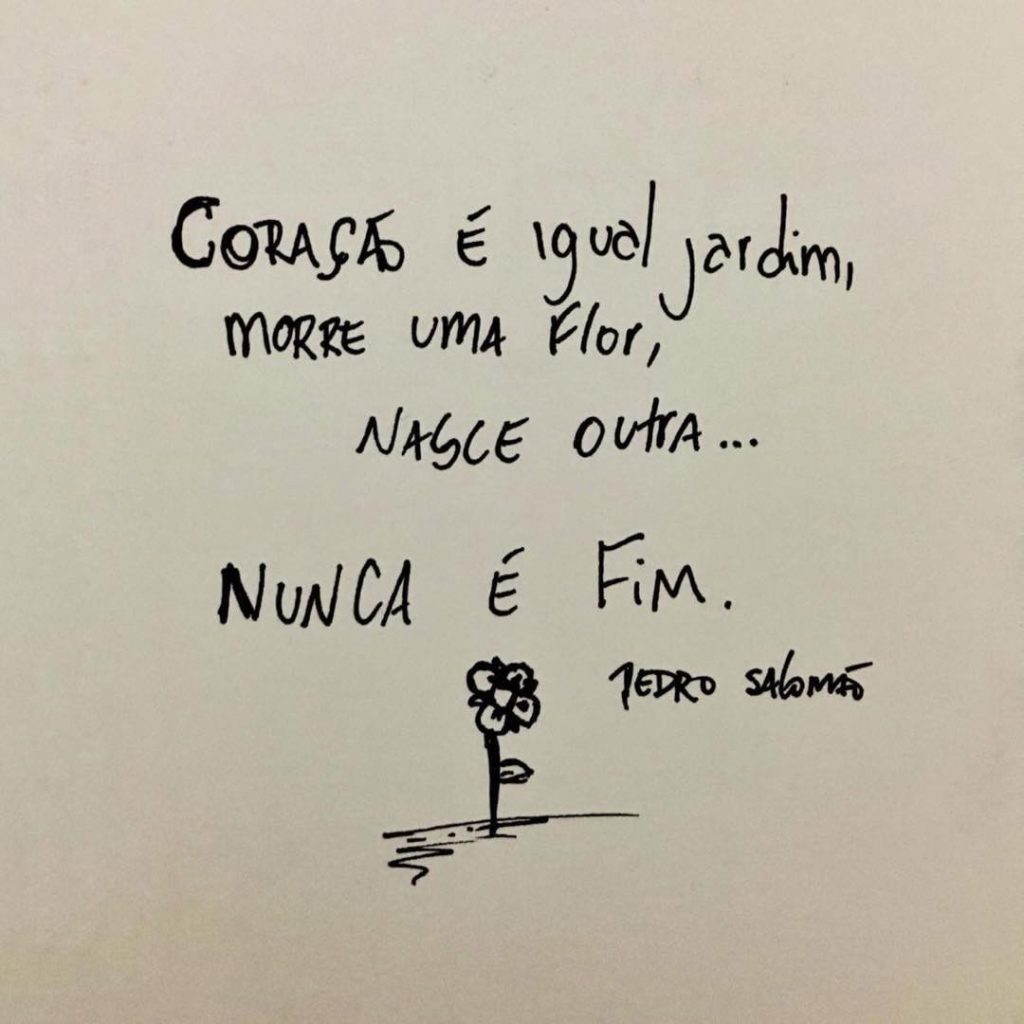 CORAÇÃO É igual jardim,
MORRE UMA Flor,
NASCE OUtrA...
NUNCA É FiM.
PEDRO SALOMÃO